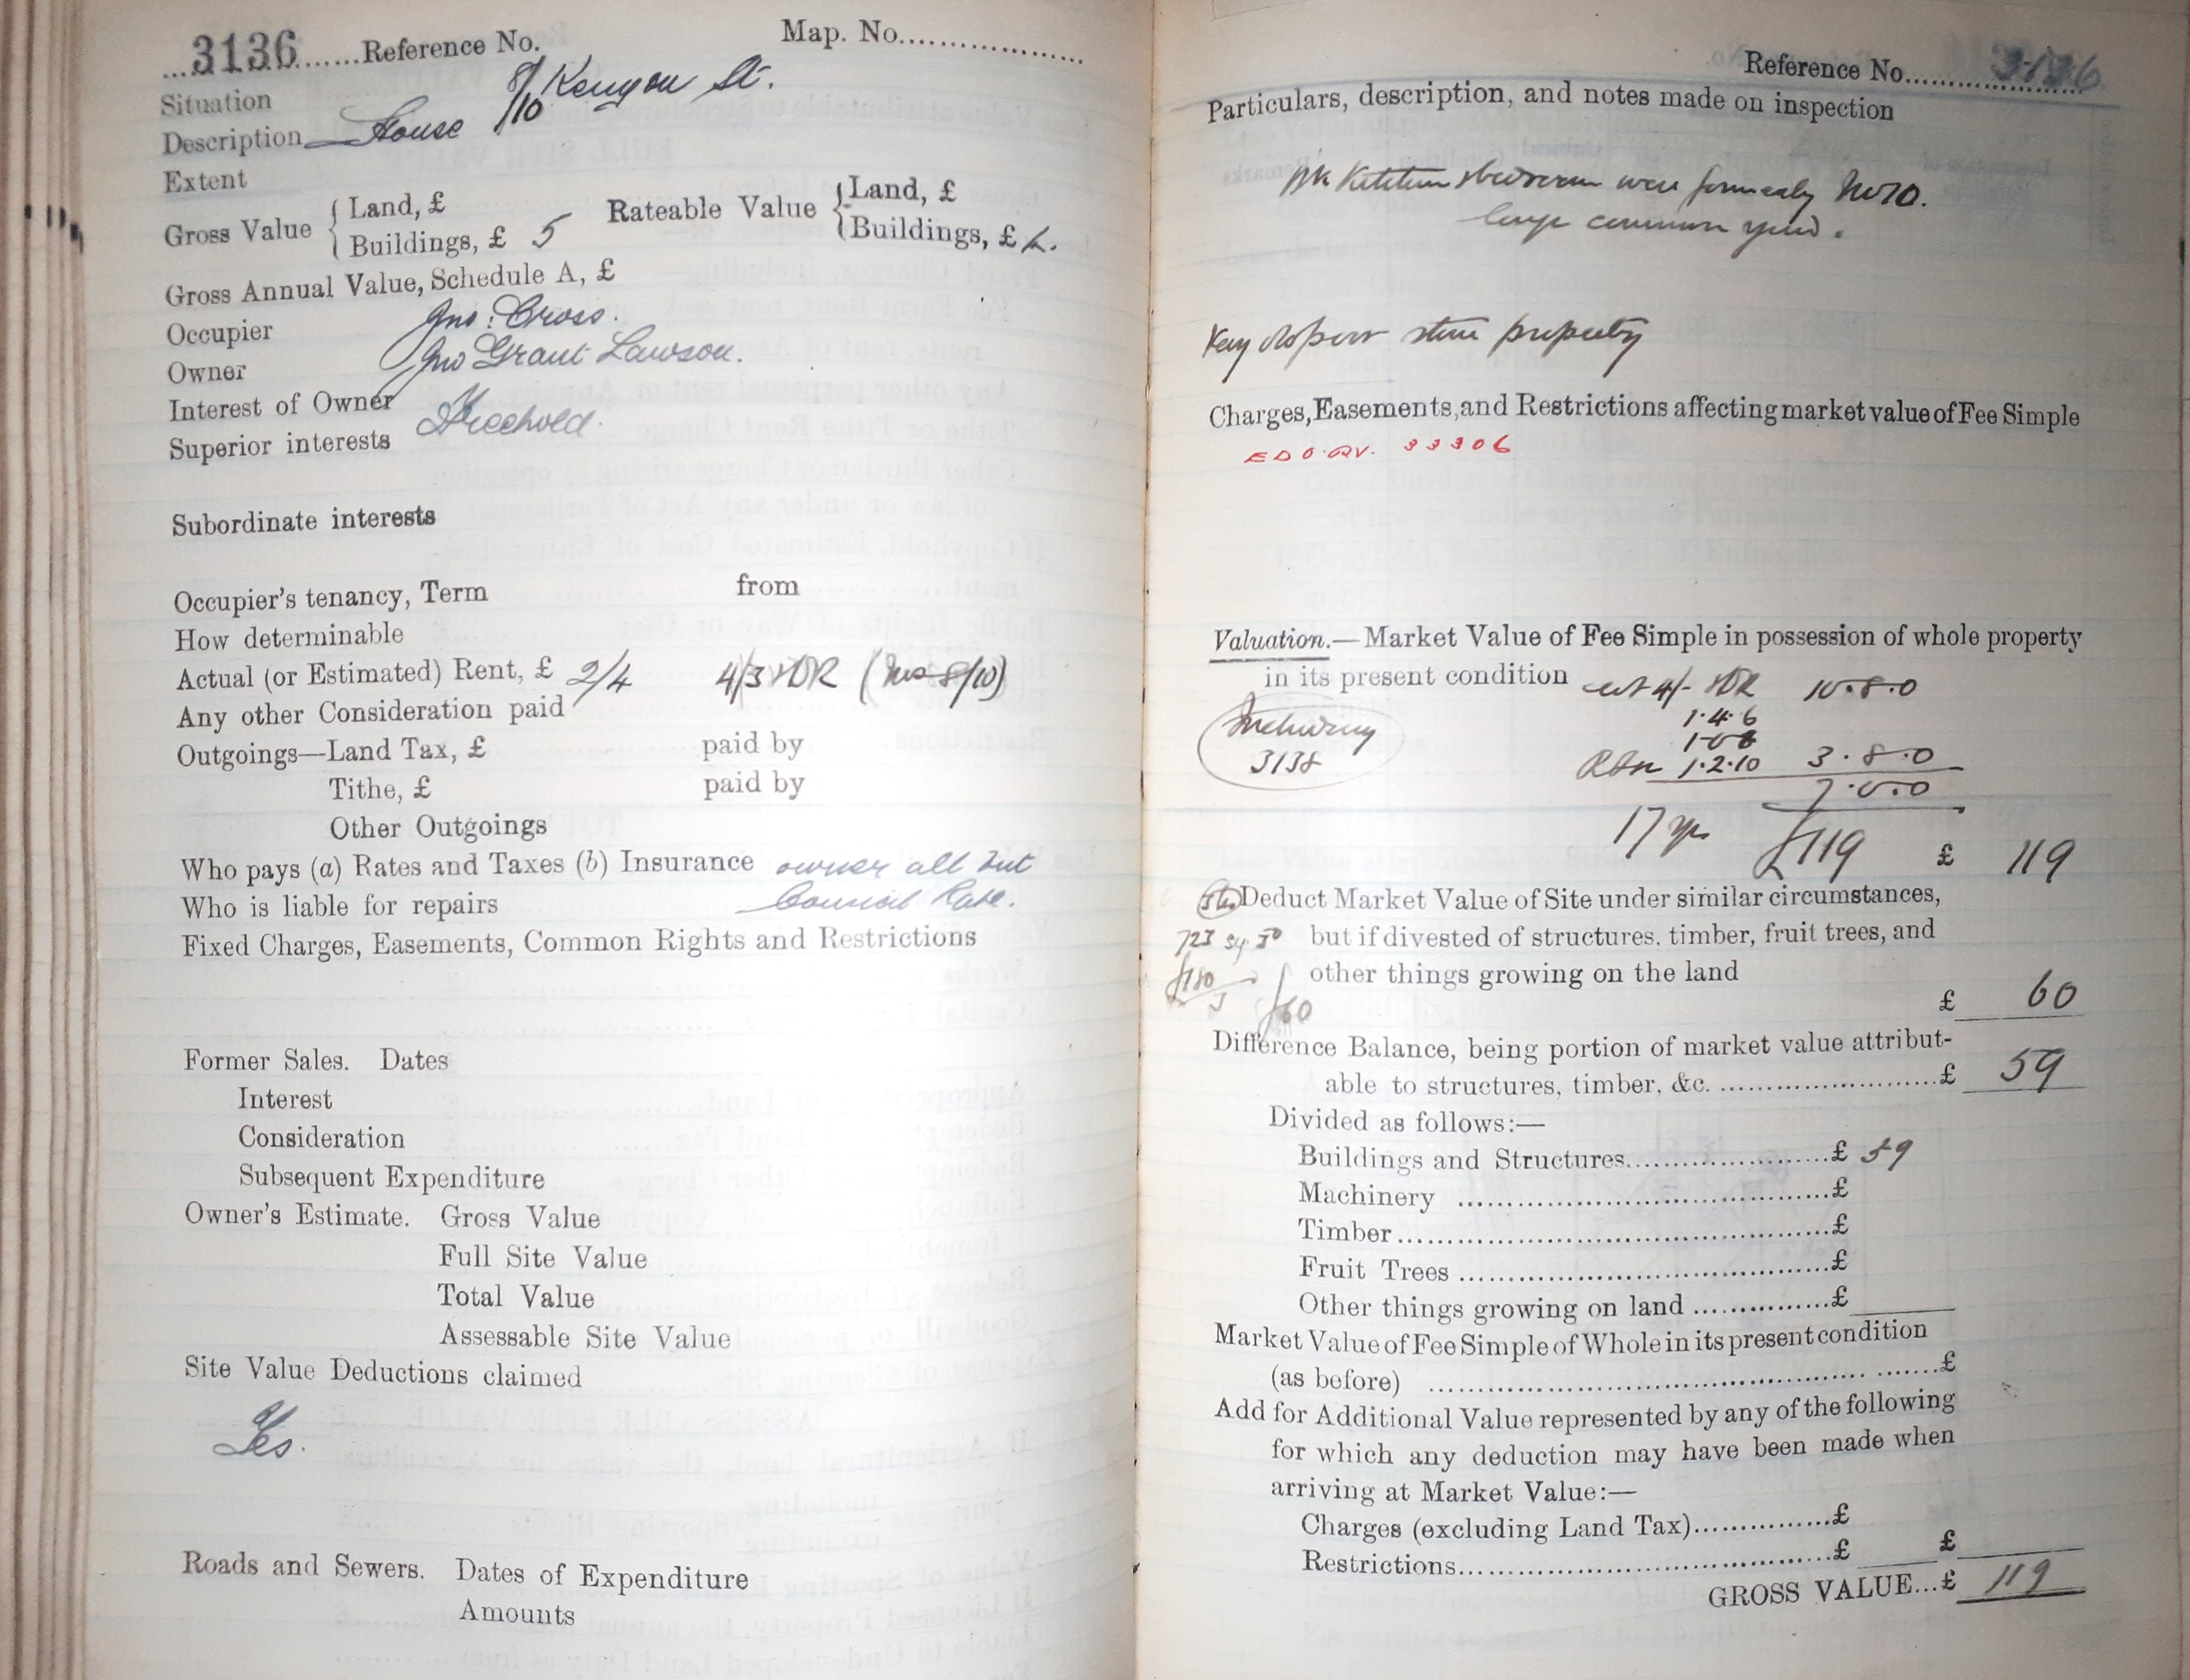 3136 Reference No. Map. No.
Situation 8/ Kenyon St.
Description House /10
Extent
Gross Value { Land, £ Rateable Value { Land, £
Buildings, £ 5 Buildings, £ 4.
Gross Annual Value, Schedule A, £
Occupier Jno: Cross.
Owner Jno Grant Lawson.
Interest of Owner Freehold.
Superior interests
Subordinate interests
Occupier's tenancy, Term from
How determinable
Actual (or Estimated) Rent, £ 2/4 4/3 (Nos 8/10)
Any other Consideration paid
Outgoings—Land Tax, £ paid by
Tithe, £ paid by
Other Outgoings
Who pays (a) Rates and Taxes (b) Insurance owner all but
Who is liable for repairs Council Rate.
Fixed Charges, Easements, Common Rights and Restrictions
Former Sales. Dates
Interest
Consideration
Subsequent Expenditure
Owner's Estimate. Gross Value
Full Site Value
Total Value
Assessable Site Value
Site Value Deductions claimed
Yes.
Roads and Sewers. Dates of Expenditure
Amounts
Reference No. 3136
Particulars, description, and notes made on inspection
Kitchen & bedroom were formerly No 10.
large common yard.
Very old poor stone property
Charges, Easements, and Restrictions affecting market value of Fee Simple
33306
Valuation.—Market Value of Fee Simple in possession of whole property
in its present condition 4/- 10.8.0
Including 1.4.6
3138 1.2.10 3.8.0
7.0.0
17 yrs £119 £ 119
Deduct Market Value of Site under similar circumstances,
723 but if divested of structures. timber, fruit trees, and
£180 other things growing on the land
3 £60 £ 60
Difference Balance, being portion of market value attribut-
able to structures, timber, &c. £ 59
Divided as follows:—
Buildings and Structures £ 59
Machinery £
Timber £
Fruit Trees £
Other things growing on land £
Market Value of Fee Simple of Whole in its present condition
(as before) £
Add for Additional Value represented by any of the following
for which any deduction may have been made when
arriving at Market Value:—
Charges (excluding Land Tax) £
Restrictions £ £
GROSS VALUE...£ 119